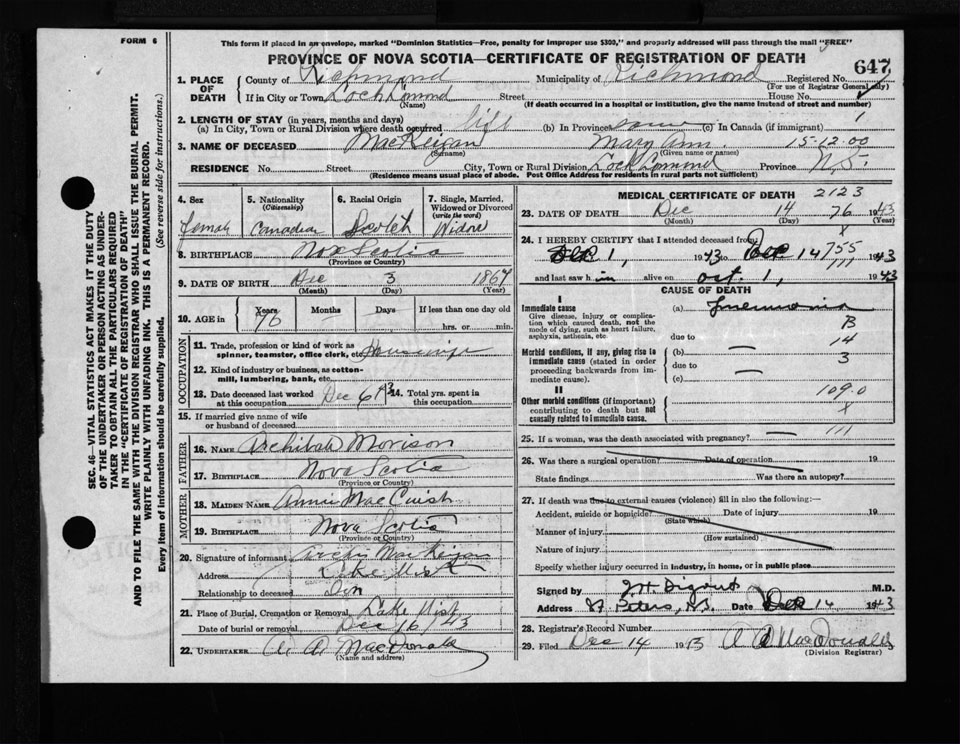 FORM 6
This form if placed in an envelope, marked "Dominion Statistics—Free, penalty for improper use $300," and properly addressed will pass through the mail "FREE"
PROVINCE OF NOVA SCOTIA—CERTIFICATE OF REGISTRATION OF DEATH
647
1. PLACE OF DEATH
County of Richmond Municipality of Richmond Registered No.
(For use of Registrar General only)
If in City or Town Loch Lomond Street House No.
(Name) (If death occurred in a hospital or institution, give the name instead of street and number)
2. LENGTH OF STAY (in years, months and days)
(a) In City, Town or Rural Division where death occurred life (b) In Province (c) In Canada (if immigrant) 1
3. NAME OF DECEASED MacKeigan Mary Ann 15-12-00
(Surname) (Given name or names)
RESIDENCE No. Street City, Town or Rural Division Loch Lomond Province N.S.
(Residence means usual place of abode. Post Office Address for residents in rural parts not sufficient)
4. Sex Female
5. Nationality (Citizenship) Canadian
6. Racial Origin Scotch
7. Single, Married, Widowed or Divorced (write the word) Widow
8. BIRTHPLACE Nova Scotia
(Province or Country)
9. DATE OF BIRTH Dec 3 1867
(Month) (Day) (Year)
10. AGE in Years 76 Months — Days If less than one day
hrs. or min.
OCCUPATION
11. Trade, profession or kind of work as spinner, teamster, office clerk, etc. Housewife
12. Kind of industry or business, as cotton-mill, lumbering, bank, etc.
13. Date deceased last worked at this occupation Dec 6 14. Total yrs. spent in this occupation
15. If married give name of wife or husband of deceased
FATHER
16. NAME Archibald Morison
17. BIRTHPLACE Nova Scotia
(Province or Country)
MOTHER
18. MAIDEN NAME Annie MacCuish
19. BIRTHPLACE Nova Scotia
(Province or Country)
20. Signature of informant MacKeigan
Address Lake Uist
Relationship to deceased Son
21. Place of Burial, Cremation or Removal Lake Uist
Date of burial or removal Dec 16/43
22. UNDERTAKER A. A. MacDonald
(Name and address)
MEDICAL CERTIFICATE OF DEATH 2123
23. DATE OF DEATH Dec 14 76 1943
(Month) (Day) (Year)
X
24. I HEREBY CERTIFY that I attended deceased from
1, 1943 to Dec 14 755 1943
111
and last saw him alive on Oct. 1, 1943
CAUSE OF DEATH
I
Immediate cause
Give disease, injury or complication which caused death, not the mode of dying, such as heart failure, asphyxia, asthenia, etc.
(a) Pneumonia
B
due to 14
Morbid conditions, if any, giving rise to immediate cause (stated in order proceeding backwards from immediate cause).
(b) — 3
due to
(c) —
II
Other morbid conditions (if important) contributing to death but not causally related to immediate cause.
109.0
X
111
25. If a woman, was the death associated with pregnancy? —
26. Was there a surgical operation? Date of operation 19
State findings Was there an autopsy?
27. If death was due to external causes (violence) fill in also the following:—
Accident, suicide or homicide? Date of injury 19
(State which)
Manner of injury
(How sustained)
Nature of injury
Specify whether injury occurred in industry, in home, or in public place
Signed by J. H. Digout M.D.
Address St Peters, N.S. Date Dec 14 1943
28. Registrar's Record Number
29. Filed Dec 14 1943 A A MacDonald
(Division Registrar)
SEC. 46—VITAL STATISTICS ACT MAKES IT THE DUTY
OF THE UNDERTAKER OR PERSON ACTING AS UNDER-
TAKER TO OBTAIN ALL THE PARTICULARS REQUIRED
IN THE "CERTIFICATE OF REGISTRATION OF DEATH"
AND TO FILE THE SAME WITH THE DIVISION REGISTRAR WHO SHALL ISSUE THE BURIAL PERMIT.
WRITE PLAINLY WITH UNFADING INK. THIS IS A PERMANENT RECORD.
Every item of information should be carefully supplied. (See reverse side for instructions.)